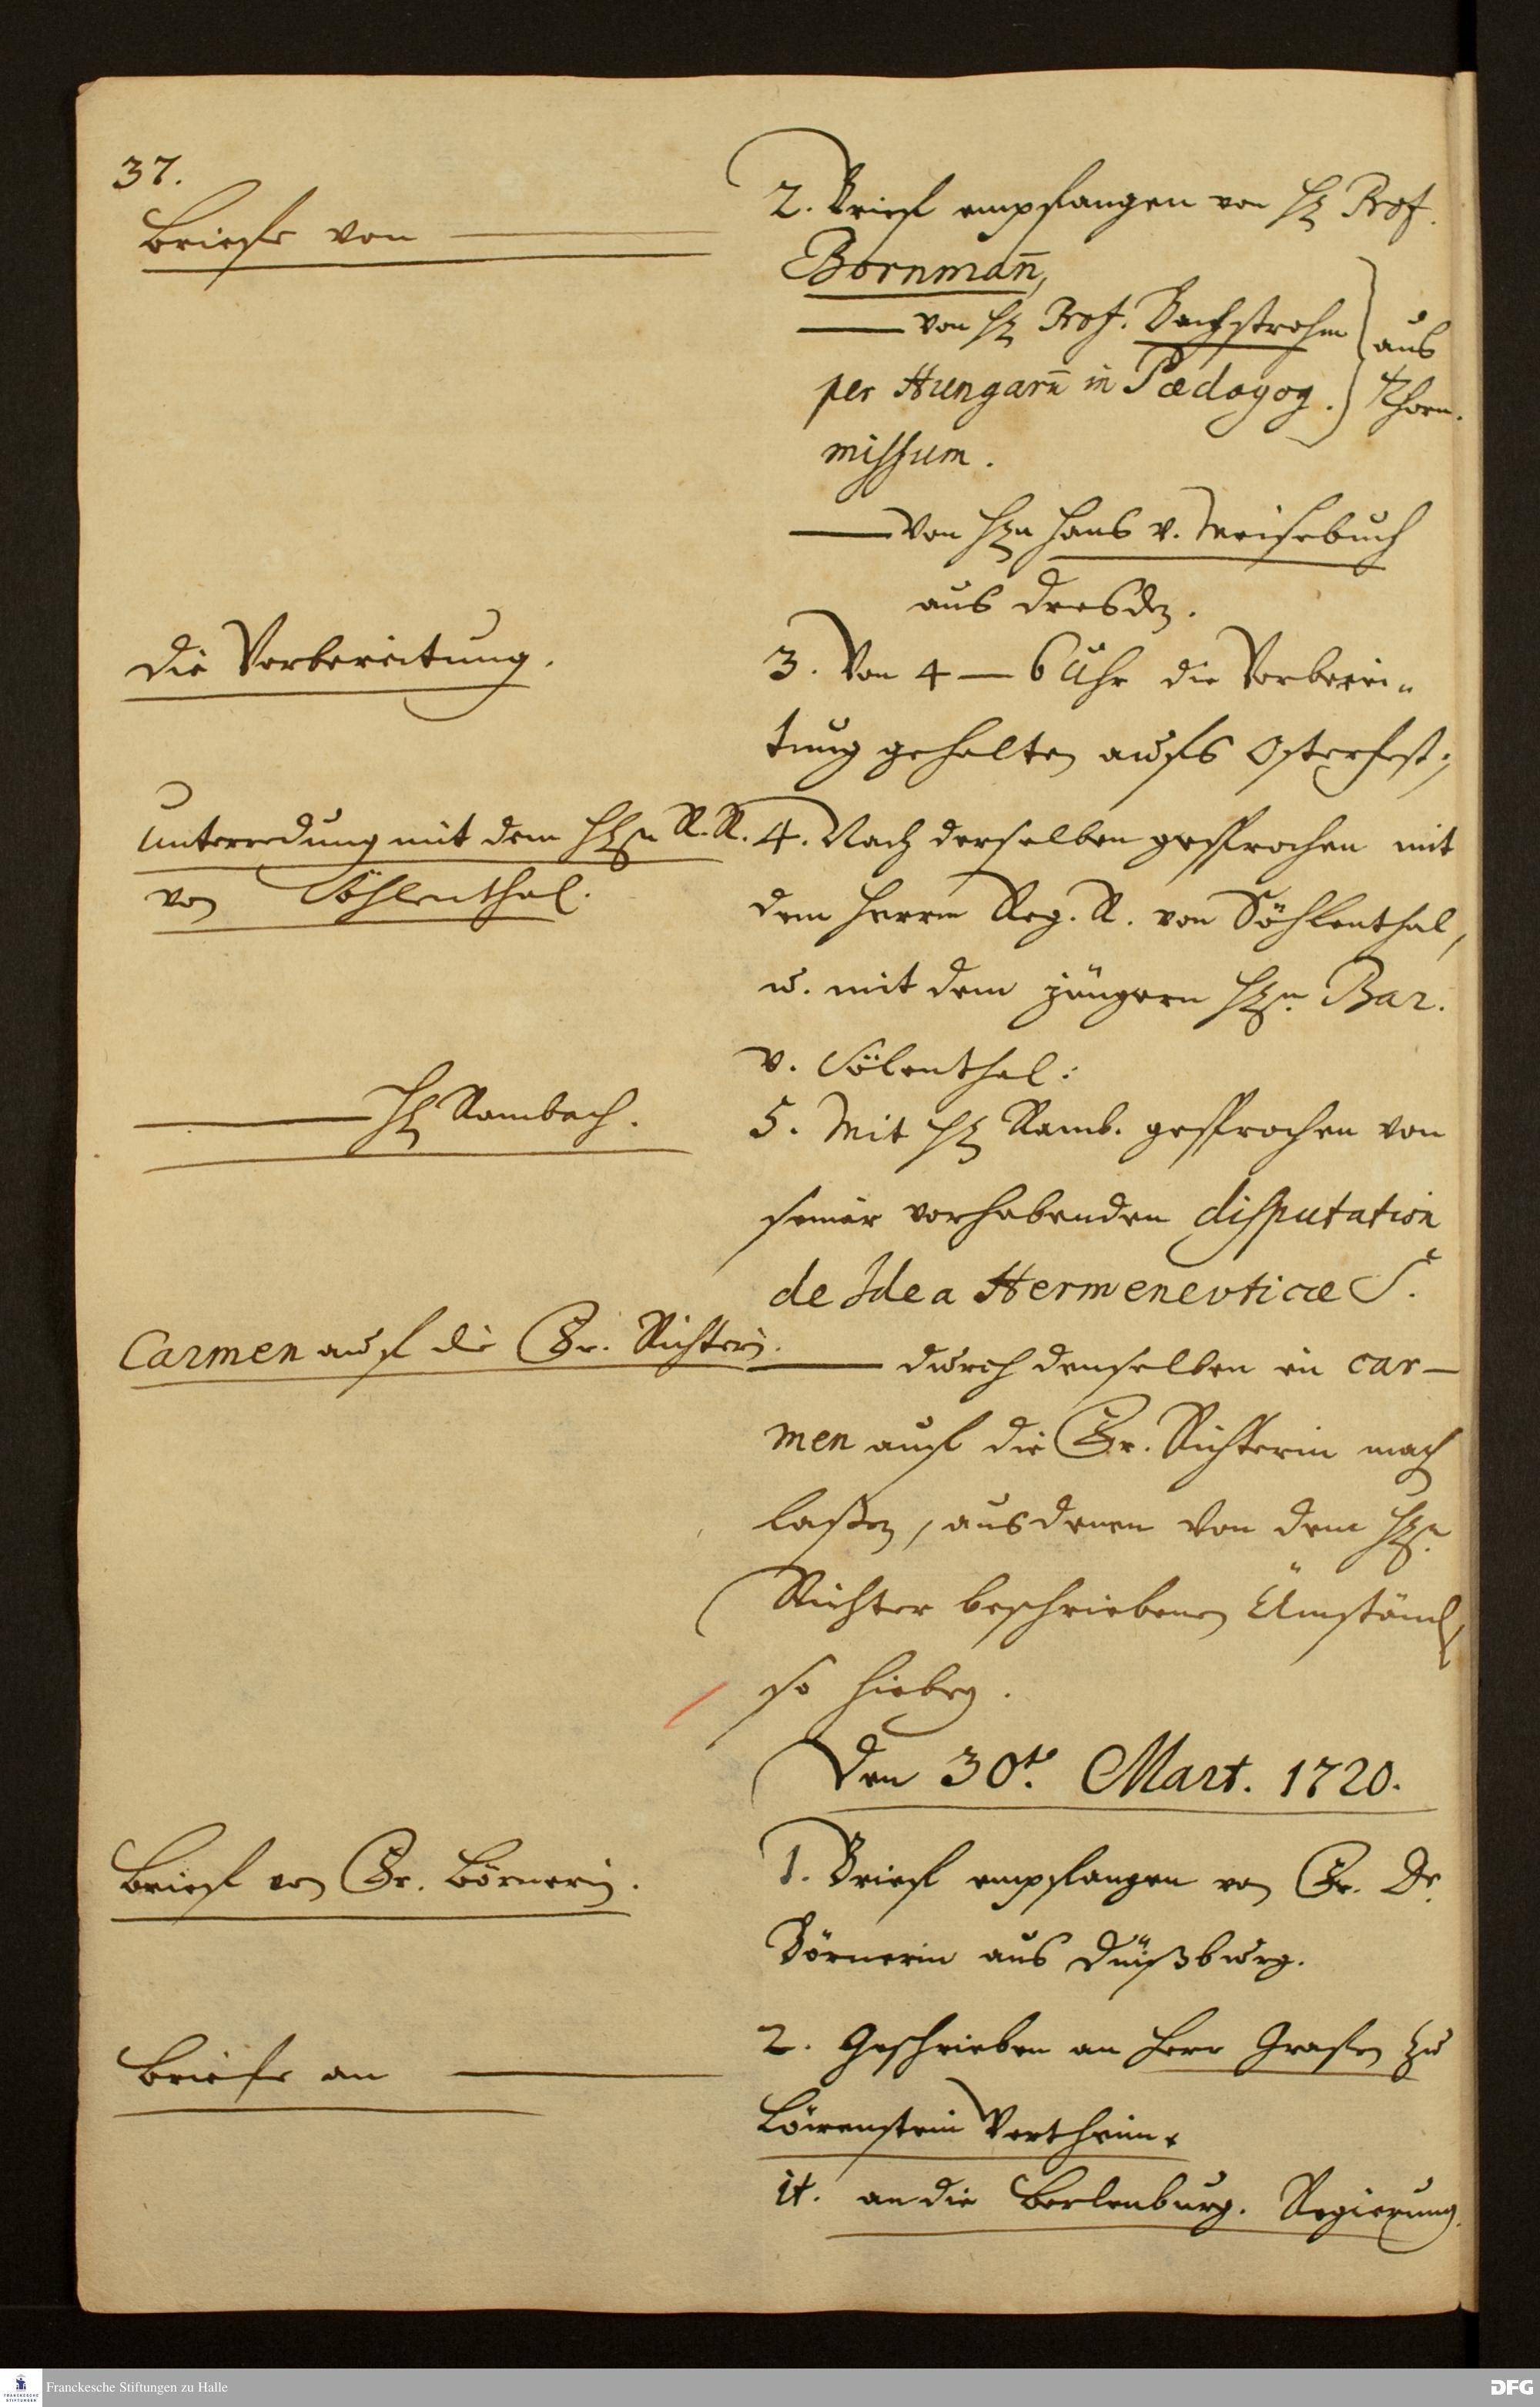 37.
Briefe von
2. Brief empfangen von H. Prof.
Bornman̄,
von H. Prof. Bachstrohm
aus
per Hungarū in Pædagog.
Thorn.
missum.
Von Hn Hans v. Meisebuch
aus Dresden.
Die Vorbereitung.
3. Von 4 — 6 Uhr die Vorberei-
tung gehalten aufs Osterfest.
Unterredung mit dem Hn R. R.
von Söhlenthal.
4. Nach derselben gesprochen mit
dem Herrn Reg. R. von Söhlenthal,
u. mit dem jüngern Hn. Bar.
v. Sölenthal:
H Rambach.
5. Mit H Ramb. gesprochen von
seiner vorhabenden disputation
de Idea Hermenevticæ S.
Carmen auf die Fr. Richterin.
durch denselben ein car-
men auf die Fr. Richterin mach
laßen, aus denen von dem Hn.
Richter beschriebenen Umständ,
so hiebey.
Den 30t. Mart. 1720.
Brief von Fr. Börnerin.
1. Brief empfangen von Fr. Dr.
Börnerin aus Duißburg.
Briefe an
2. Geschrieben an Herr Grafen zu
Löwenstein Wertheim.
it. an die Berlenburg. Regierung.
Franckesche Stiftungen zu Halle
DFG